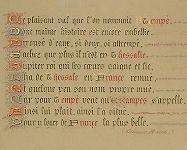 Ce plaisant val que l'on nommoit Tempé,
Dont mainte histoire est encor embellie,
Arrosé d'eaux, si doux, si attrempé,
Sachez que plus il n'est en Thessalie
Jupiter roi qui les cœurs gaigne et lie
L'ha de Thessale en France remué
Et quelque peu son nom propre mué
Car pour Tempé veut qu'Estampes s'appelle,
Ainsi lui plait, ainsi l'a situé,
Pour y loger de France la plus belle.
Clément Marot